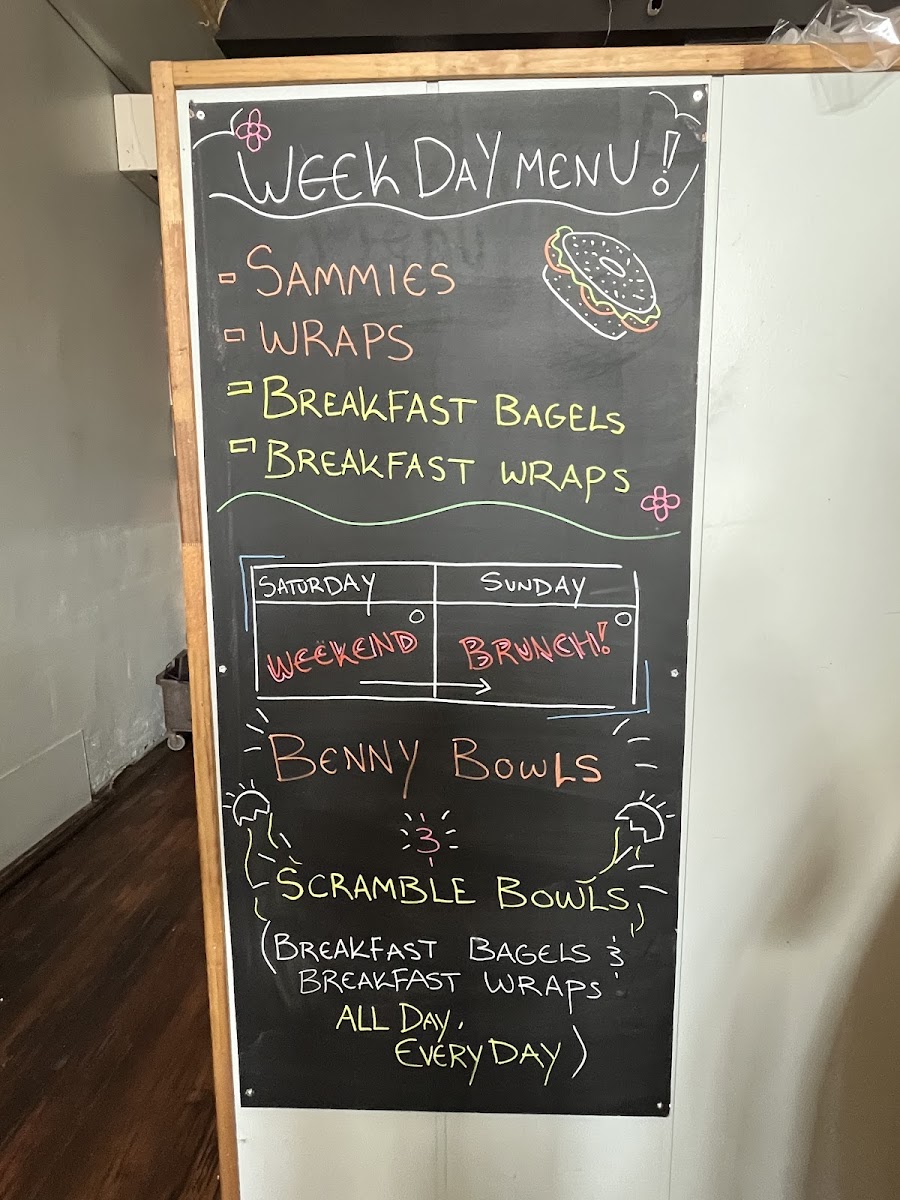 WEEK DAY MENU!
- SAMMIES
- WRAPS
- BREAKFAST BAGELS
- BREAKFAST WRAPS
SATURDAY SUNDAY
WEEKEND BRUNCH!
BENNY BOWLS
&
SCRAMBLE BOWLS
(BREAKFAST BAGELS &
BREAKFAST WRAPS
ALL DAY,
EVERY DAY)